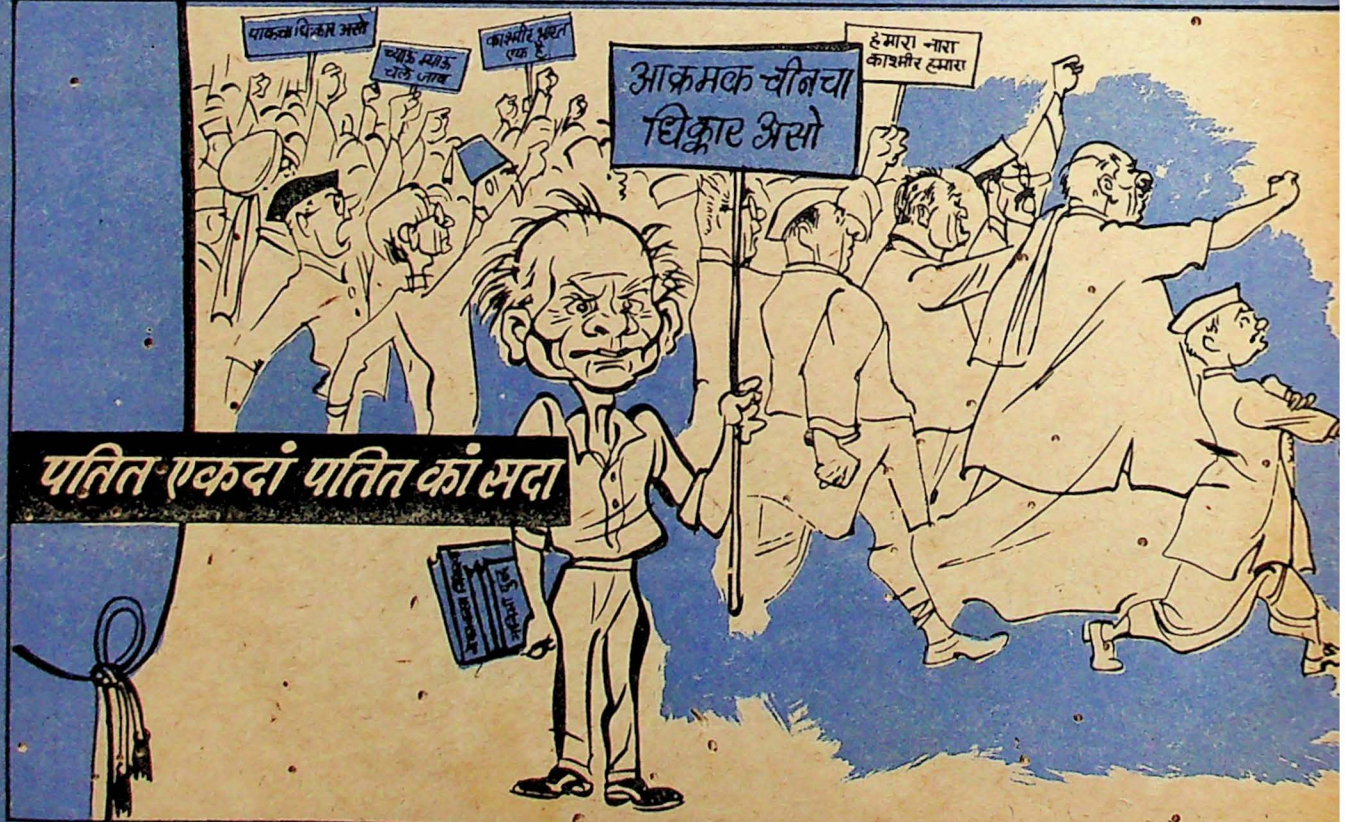 पाकचा धिक्कार असो
च्याऊ म्याऊ
चले जाव
काश्मीर भारत
एक है
आक्रमक चीनचा
धिक्कार असो
हमारा नारा
काश्मीर हमारा
पतित एकदां पतित कां सदा